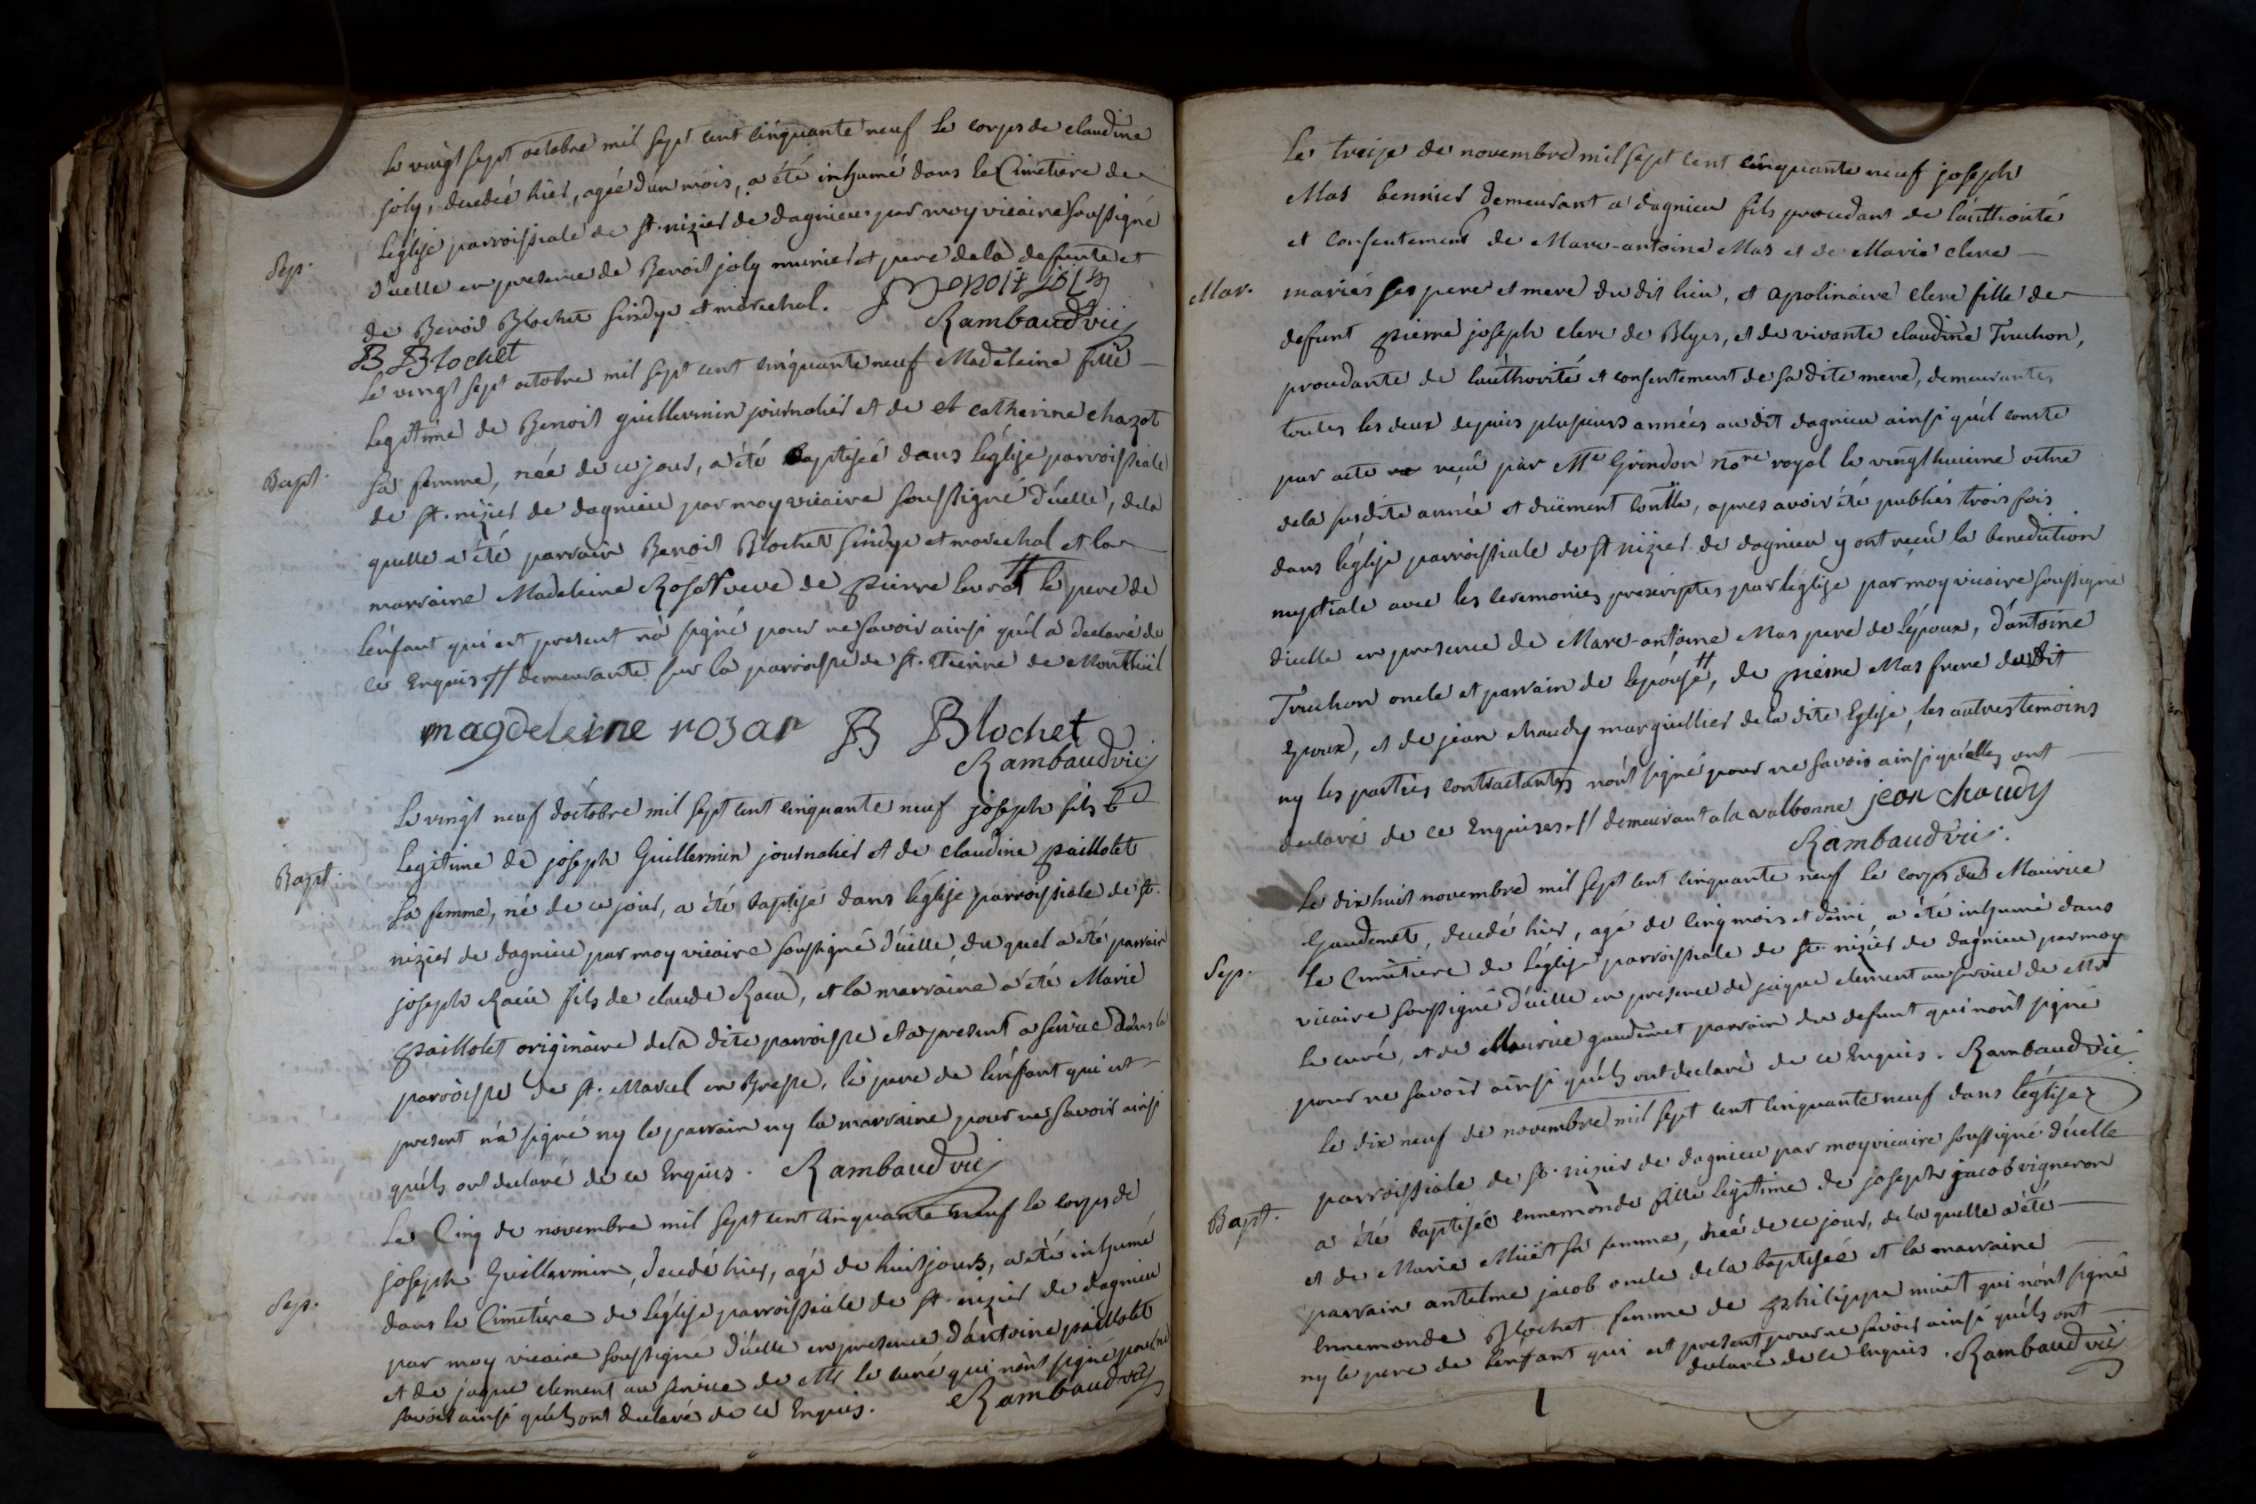 Le vingt sept octobre mil sept cent cinquante neuf Le corps de claudine
joly, decedée hier, agée d'un mois, a été inhumé dans le Cimetiere de
L'église parroissiale de st. nizier de dagnieu par moy vicaire soussigné
Sep.
d'icelle en presence de Benoit joly munier et pere de la defunte et
de Benoit Blochet sindye et marechal. Benoit joly
B Blochet Rambaud vic
Le vingt sept octobre mil sept cent cinquante neuf Madeleine fille
Legitime de Benoit guillermin journalier et de et catherine chazot
Bapt.
sa femme, née de ce jour, a été baptisée dans l'église parroissiale
de st. nizier de dagnieu par moy vicaire soussigné d'icelle, de la
quelle a été parrain Benoit Blochet sindye et marechal et la
marraine Madeleine Rosat veve de pierre levrat // le pere de
l'enfant qui est present n'a signé pour ne savoir ainsi qu'il a declaré de
ce Enquis // demeurante sur la parroisse de st. etienne de Montluel
magdeleine rozar B Blochet
Rambaud vic
Le vingt neuf d'octobre mil sept cent cinquante neuf joseph fils
Legitime de joseph Guillermin journalier et de claudine paillolet
Bapt.
sa femme, né de ce jour, a été baptisé dans l'église parroissiale de st.
nizier de dagnieu par moy vicaire soussigné d'icelle, du quel a été parrain
joseph Racu fils de claude Racu, et la marraine a été Marie
paillolet originaire de la dite parroisse et a present a service dans la
parroisse de st. Marcel en Bresse, le pere de l'enfant qui est
present n'a signé ny le parrain ny la marraine pour ne savoir ainsi
qu'ils ont declaré de ce Enquis. Rambaud vic
Le Cinq de novembre mil sept cent cinquante neuf le corps de
joseph Guillermin, decedé hier, agé de huit jours, a été inhumé
Sep.
dans le Cimetiere de l'église parroissiale de st. nizier de dagnieu
par moy vicaire soussigné d'icelle en presence d'antoine paillolet
et de jaque clement au service de Mr le curé qui n'ont signé pour ne
savoir ainsi qu'ils ont declaré de ce Enquis. Rambaud vic
Le treize de novembre mil sept cent cinquante neuf joseph
Mas bennier demeurant a dagnieu fils procedant de l'authorité
et consentement de Marc-antoine Mas et de Marie clerc
Mar.
mariés ses pere et mere du dit lieu, et apolinaire clerc fille de
defunt pierre joseph clerc de Blyes, et de vivante claudine Truchon,
procedante de l'authorité et consentement de sa dite mere, demeurantes
toutes les deux depuis plusieurs années au dit dagnieu ainsi qu'il conste
par acte reçu par Mre Grindon nore royal le vingthuieme octre
de la susdite année et duement contllé, apres avoir été publiés trois fois
dans l'église parroissiale de st nizier de dagnieu y ont reçu la benediction
nuptiale avec les ceremonies prescriptes par l'église par moy vicaire soussigné
d'icelle en presence de Marc-antoine Mas pere de l'époux, d'antoine
Truchon oncle et parrain de l'epouse //, de pierre Mas frere du dit
Epoux, et de jean chaudy marguillier de la dite Eglise, les autres temoins
ny les parties contractantes n'ont signé pour ne savoir ainsi qu'elles ont
declaré de ce Enquises. // demeurant a la valbonne jean chaudy
Rambaud vic.
Le dix huit novembre mil sept cent cinquante neuf le corps de Maurice
Gaudenet, decedé hier, agé de cinq mois et demi a été inhumé dans
Sep.
Le Cimetiere de l'église parroissiale de st. nizier de dagnieu par moy
vicaire soussigné d'icelle en presence de jaque clement au service de Mr
le curé, et de Maurice gaudenet parrain du defunt qui n'ont signé
pour ne savoir ainsi qu'ils ont declaré de ce Enquis. Rambaud vic
Le dix neuf de novembre mil sept cent cinquante neuf dans l'église
parroissiale de st. nizier de dagnieu par moy vicaire soussigné d'icelle
Bapt.
a été baptisée ennemonde fille legitime de joseph jacob vigneron
et de Marie Miiet sa femme, née de ce jour, de la quelle a été
parrain antelme jacob oncle de la baptisée et la marraine
Ennemonde Blochet femme de philippe miiet qui n'ont signé
ny le pere de l'enfant qui est present pour ne savoir ainsi qu'ils ont
declaré de ce Enquis. Rambaud vic